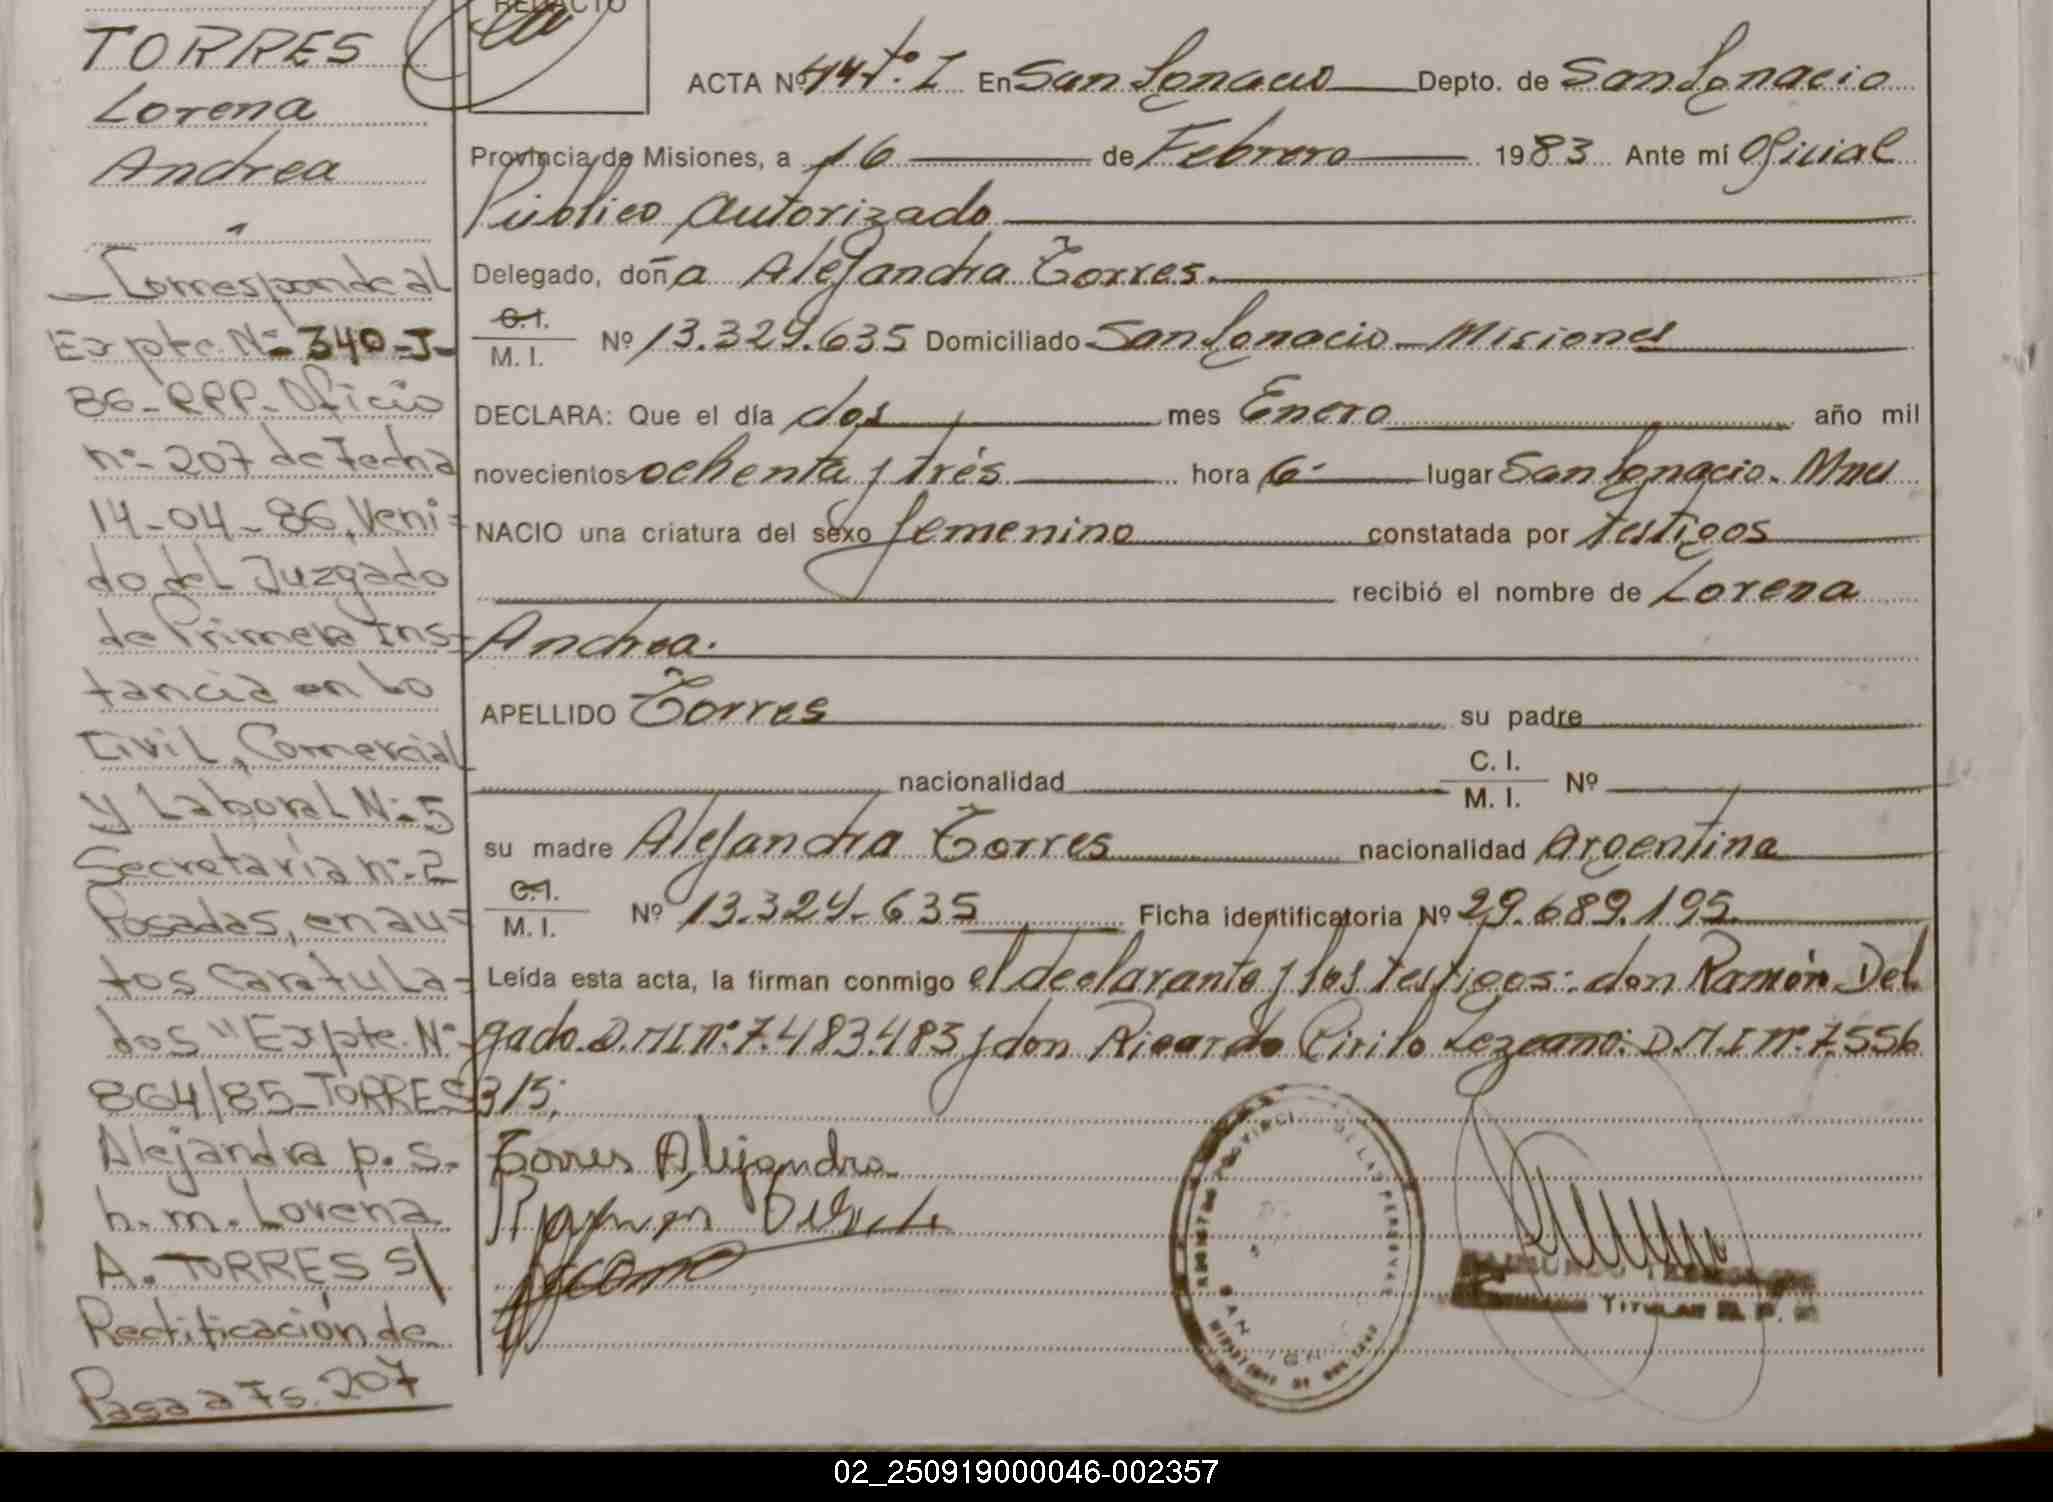 REDACTO
TORRES
Lorena
Andrea
Corresponde al
Expte. Nº 340-J-
86-RPP. Oficio
nº 207 de Fecha
14-04-86, Veni-
do del Juzgado
de Primera Ins-
tancia en lo
Civil, Comercial
y Laboral Nº 5
Secretaría nº 2
Posadas, en au-
tos Caratula-
dos "Expte. Nº
864/85-TORRES
Alejandra p. s.
h. m. Lorena
A. TORRES S/
Rectificación de
Pasa a Fs. 207
ACTA Nº 44 tº. I En San Ignacio Depto. de San Ignacio
Provincia de Misiones, a 16 de Febrero 1983 Ante mí Oficial
Público Autorizado
Delegado, doña Alejandra Torres.
C. I.
M. I. Nº 13.329.635 Domiciliado San Ignacio - Misiones
DECLARA: Que el día dos mes Enero año mil
novecientos ochenta y trés hora 6- lugar San Ignacio. Mnes
NACIO una criatura del sexo femenino constatada por testigos
recibió el nombre de Lorena
Andrea.
APELLIDO Torres su padre
nacionalidad C. I.
M. I. Nº
su madre Alejandra Torres nacionalidad Argentina
C. I.
M. I. Nº 13.329-635 Ficha identificatoria Nº 29.689.195
Leída esta acta, la firman conmigo el declarante y los testigos: don Ramón Del
gado. D.M.I nº. 7.483.483 y don Ricardo Cirilo Lezcano: D.M.I nº. 7.556
315;
Torres Alejandra
TITULAR
02_250919000046-002357